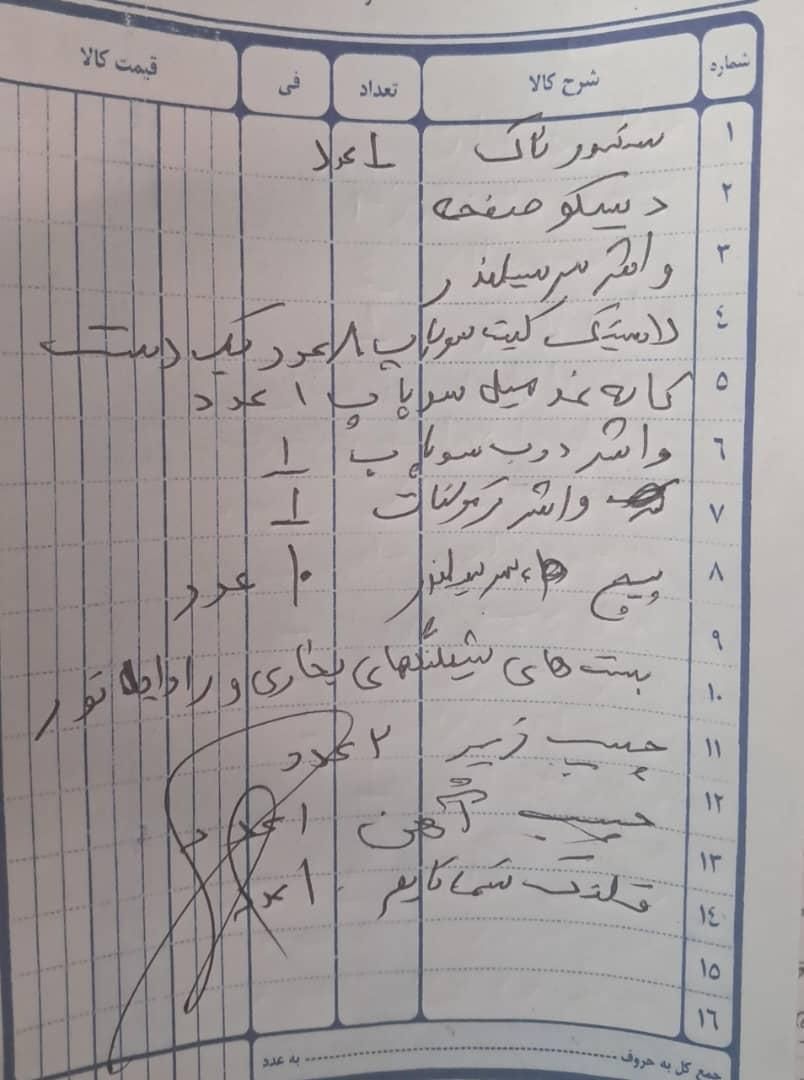 شماره شرح کالا تعداد فی قیمت کالا
۱ سنسور ناک 1 عدد
۲ دیسکو صفحه
۳ واشر سرسیلندر
٤ لاستیک کیت سوپاپ ۸ عدد یک دست
۵ کاسه نمد میل سوپاپ ۱ عدد
٦ واشر درب سوپاپ 1
۷ واشر ترموستات 1
۸ پیچ سرسیلندر ۱۰ عدد
۹
۱۰ بست های شیلنگهای بخاری و رادیاتور
۱۱ چسب زیر ۲ عدد
۱۲ چسب آهن ۱ عدد
۱۳
۱٤ ۱ عدد
۱۵
۱٦
جمع کل به حروف به عدد